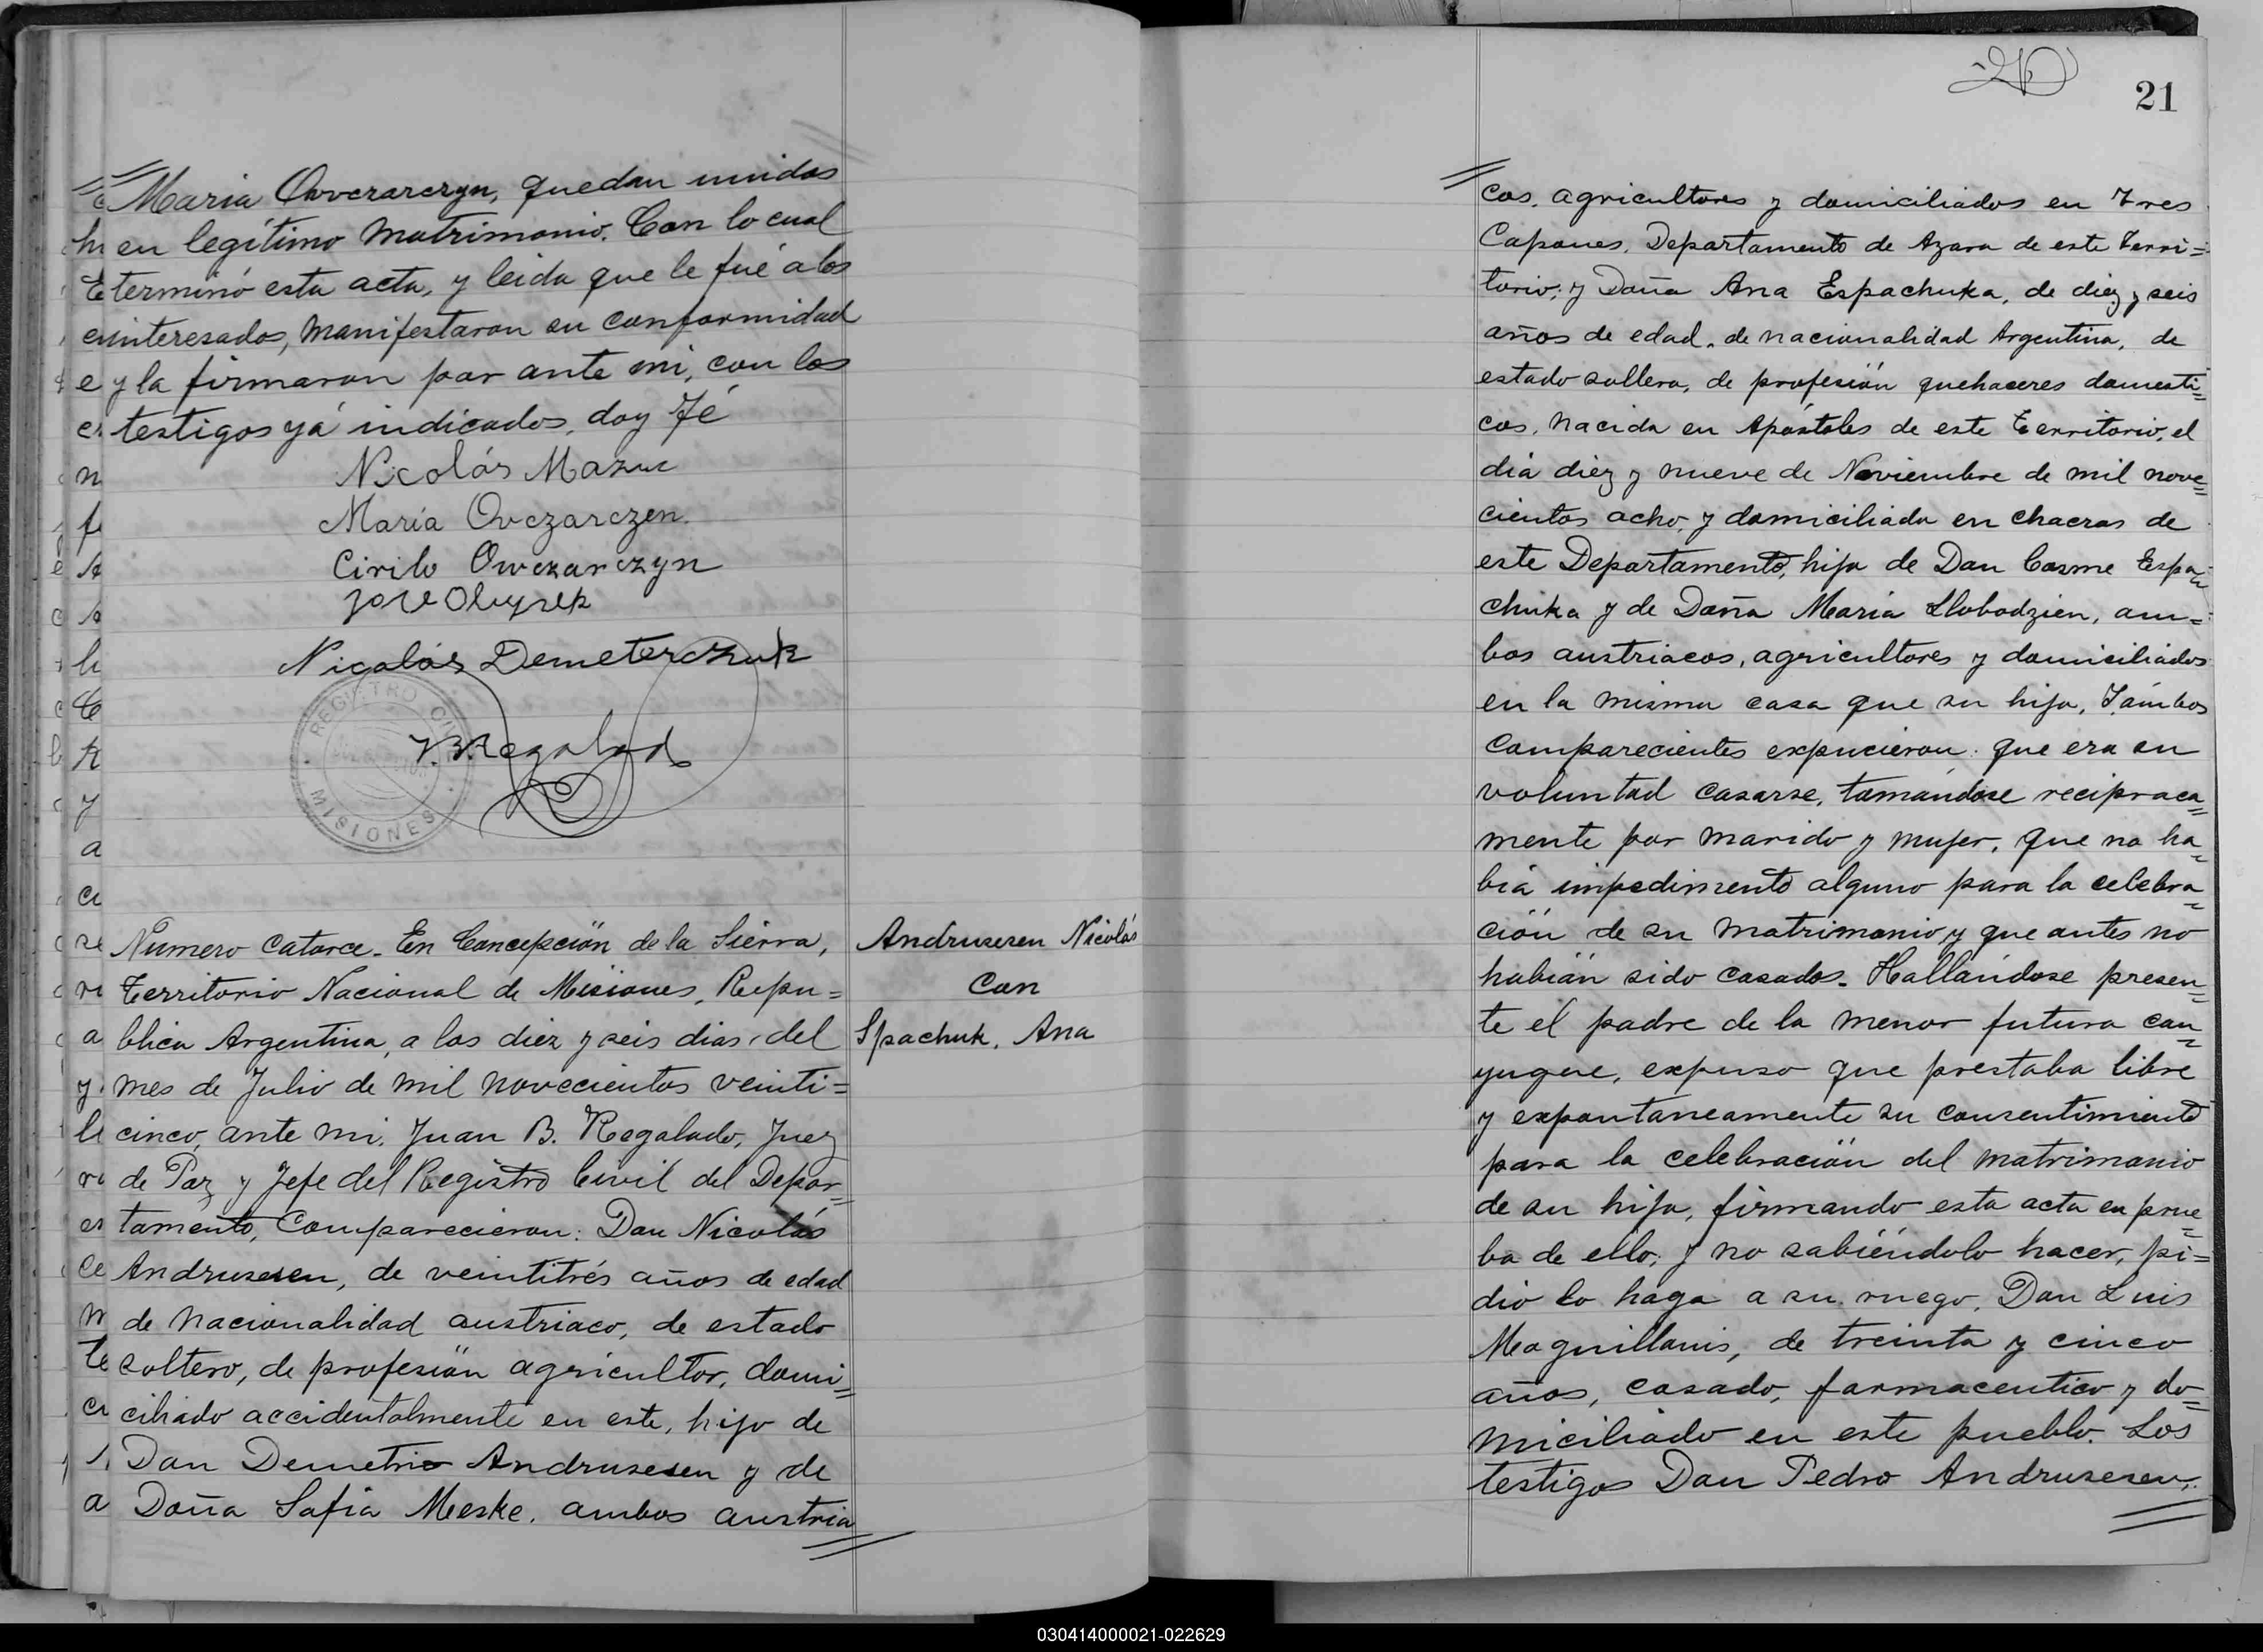 Maria Owczarczyn, quedan unidos
en legítimo Matrimonio. Con lo cual
terminó esta acta, y leida que le fué a los
interesados, manifestaron su conformidad
y la firmaron por ante mi, con los
testigos yá indicados, doy fé
Nicolás Mazur
María Ovczarczen.
Cirilo Owczarczyn
Nicolás Demeterchuk
REGISTRO CIVIL
MISIONES
Número catorce. En Concepción de la Sierra,
Territorio Nacional de Misiones, Repu=
blica Argentina, a los diez y seis dias del
mes de Julio de mil novecientos veinti=
cinco, ante mi, Juan B. Regalado, Juez
de Paz y Jefe del Registro Civil del Depar=
tamento, Comparecieron: Don Nicolás
Andrusesen, de veintitrés años de edad
de nacionalidad austriaco, de estado
soltero, de profesión agricultor, domi=
ciliado accidentalmente en este, hijo de
Don Demetrio Andrusesen y de
Doña Sofia Meske, ambos austria
Andrusesen Nicolás
Con
Spachuk, Ana
21
cos, agricultores y domiciliados en Tres
Capones, Departamento de Azara de este Terri=
torio; y Doña Ana Espachuka, de diez y seis
años de edad, de nacionalidad Argentina, de
estado soltera, de profesión quehaceres domesti=
cos, nacida en Apóstoles de este Territorio, el
diá diez y nueve de Noviembre de mil nove=
cientos ocho, y domiciliada en chacras de
este Departamento, hija de Don Cosme Espa=
chuka y de Doña Maria Slobodzien, am=
bos austriacos, agricultores y domiciliados
en la misma casa que su hija, Y ámbos
Comparecientes expucieron: que era su
voluntad casarse, tomándose reciproca=
mente por marido y mujer, que no ha=
biá impedimento alguno para la celebra=
ción de su matrimonio y que antes no
habián sido casados. Hallándose presen=
te el padre de la menor futura con=
yugue, expuso que prestaba libre
y expontaneamente su consentimiento
para la celebración del matrimonio
de su hija, firmando esta acta en prue=
ba de ello; y no sabiéndolo hacer, pi=
dió lo haga a su ruego, Don Luis
Maguillanis, de treinta y cinco
años, casado, farmaceutico y do=
miciliado en este pueblo. Los
testigos Don Pedro Andrusesen,
030414000021-022629